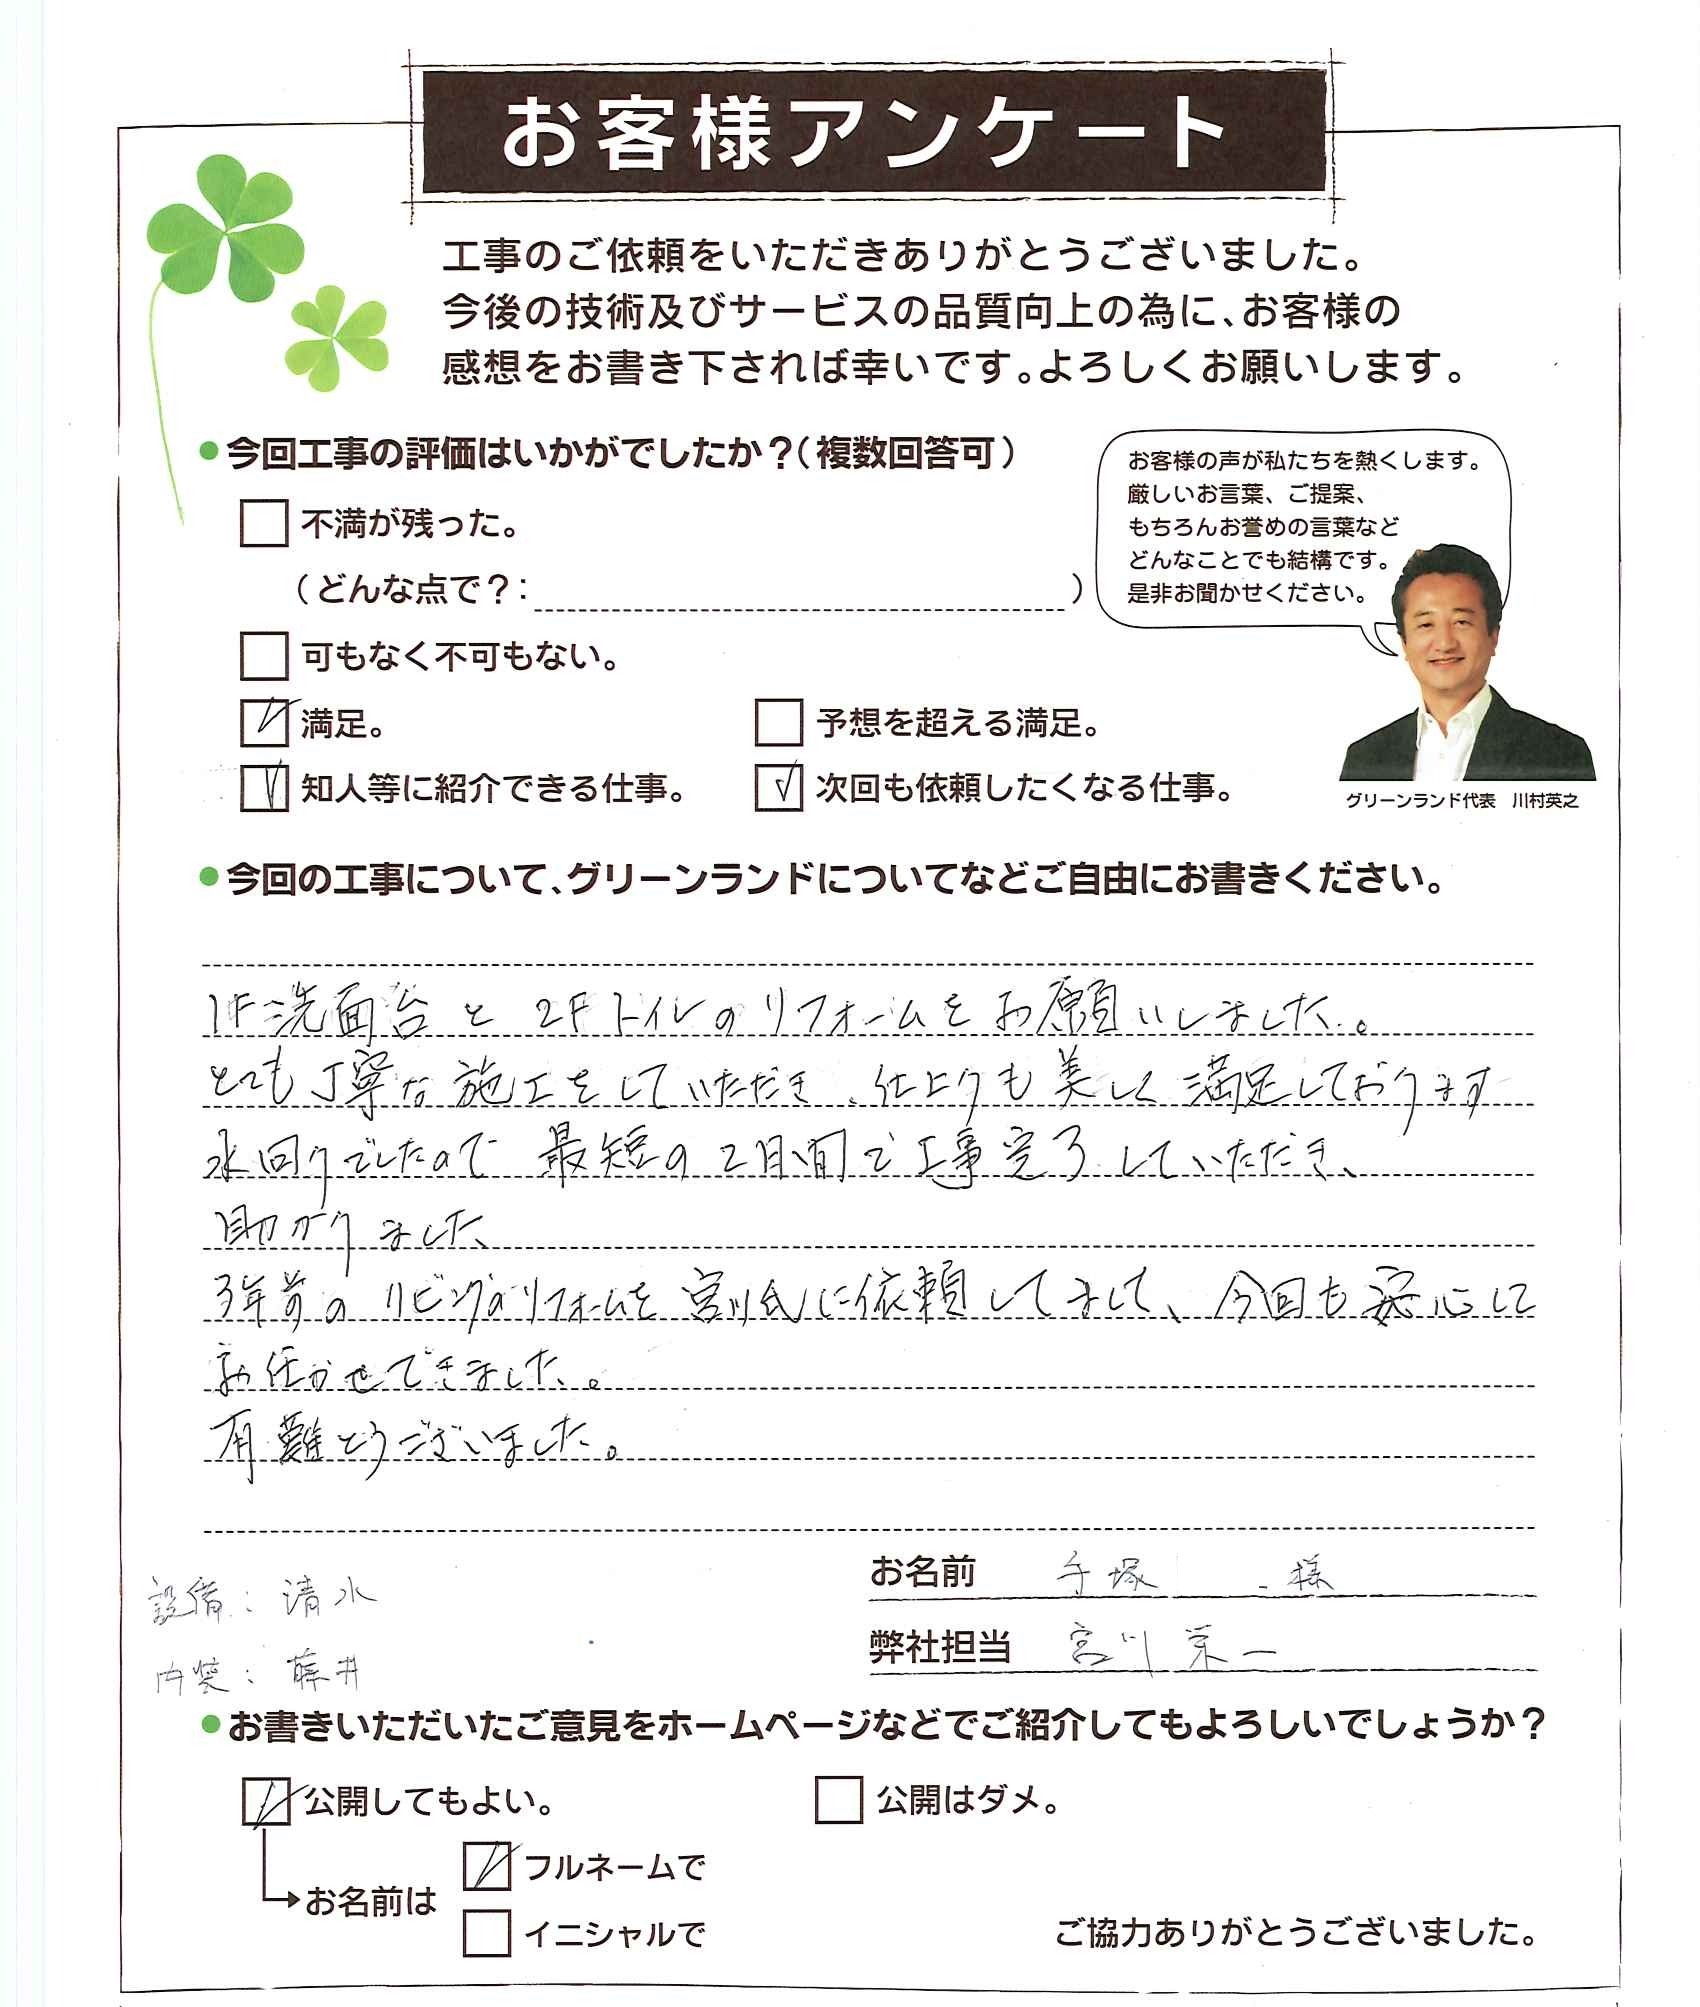 お客様アンケート
工事のご依頼をいただきありがとうございました。
今後の技術及びサービスの品質向上の為に、お客様の
感想をお書き下されば幸いです。よろしくお願いします。
●今回工事の評価はいかがでしたか？（複数回答可）
お客様の声が私たちを熱くします。
厳しいお言葉、ご提案、
もちろんお誉めの言葉など
どんなことでも結構です。
是非お聞かせください。
不満が残った。
（どんな点で？： ）
可もなく不可もない。
満足。 予想を超える満足。
知人等に紹介できる仕事。 次回も依頼したくなる仕事。
グリーンランド代表　川村英之
●今回の工事について、グリーンランドについてなどご自由にお書きください。
1F洗面台と2Fトイレのリフォームをお願いしました。
とても丁寧な施工をしていただき、仕上りも美しく満足しております
水回りでしたので最短の2日間で工事完了していただき、
助かりました
3年前のリビングのリフォームを宮川氏に依頼してまして、今回も安心して
お任かせできました。
有難とうございました。
お名前 手塚 様
設備：清水
弊社担当 宮川栄一
内装：藤井
●お書きいただいたご意見をホームページなどでご紹介してもよろしいでしょうか？
公開してもよい。 公開はダメ。
フルネームで
お名前は
イニシャルで
ご協力ありがとうございました。